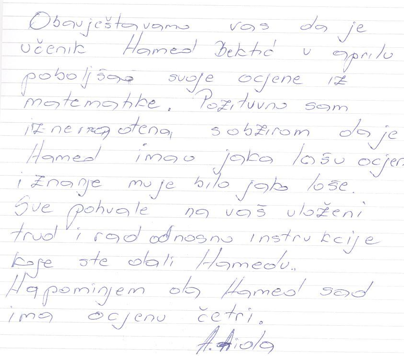 Obavještavamo vas da je
učenik Hamed Bektić u aprilu
poboljšao svoje ocjene iz
matematike. Pozitivno sam
iznenađena, s obzirom da je
Hamed imao jako lošu ocjen
i znanje mu je bilo jako loše.
Sve pohvale na vaš uloženi
trud i rad odnosno instrukcije
koje ste dali Hamedu.
Napominjem da Hamed sad
ima ocjenu četri.
A. Aida